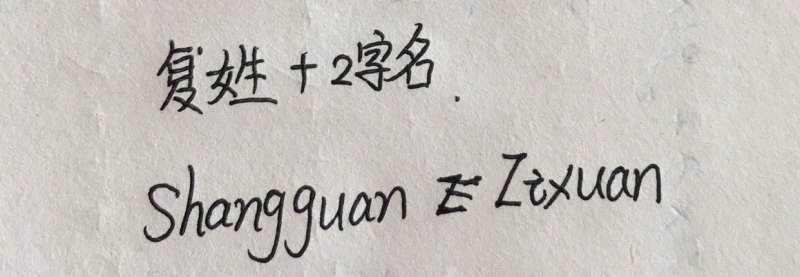 复姓+2字名.
Shangguan Zixuan